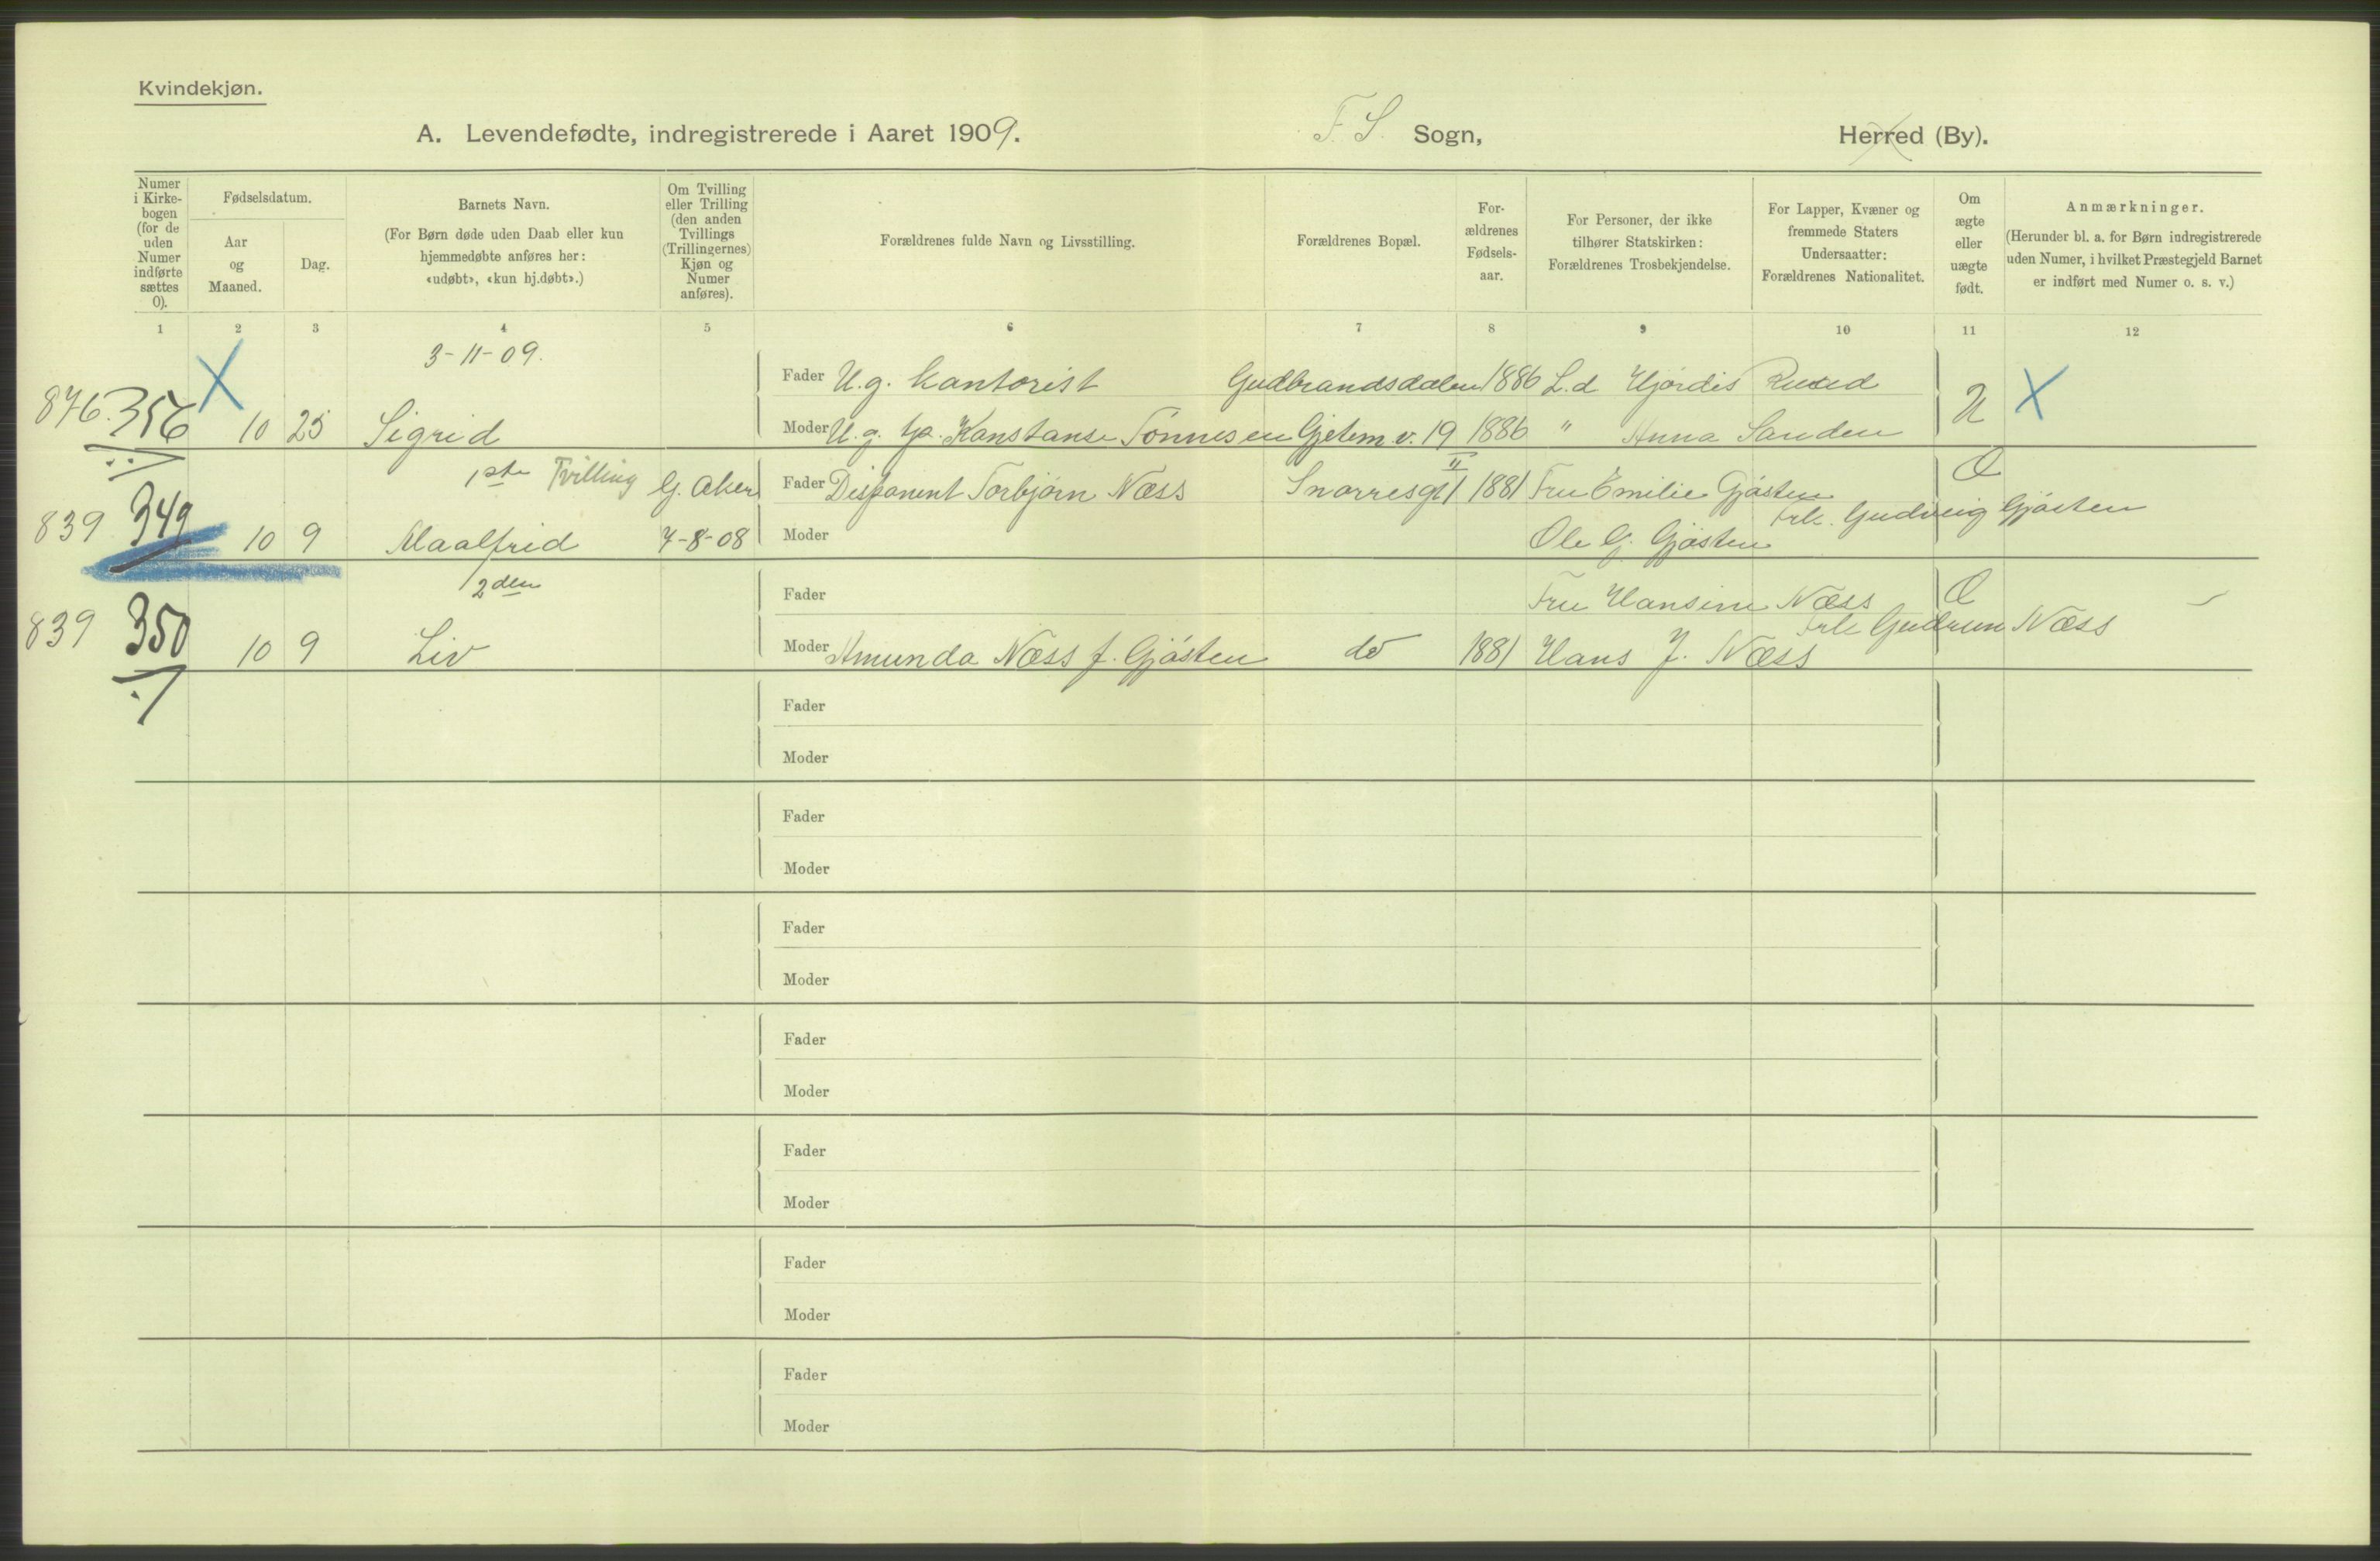 Kvindekjøn.
A. Levendefødte, indregistrerede i Aaret 1909. F. S. Sogn, Herred (By).
Numer i Kirkebogen (for de uden Numer indførte sættes 0).
Fødselsdatum.
Aar og Maaned.
Dag.
Barnets Navn.
(For Børn døde uden Daab eller kun hjemmedøbte anføres her: «udøbt», «kun hj.døbt».)
Om Tvilling eller Trilling (den anden Tvillings (Trillingernes) Kjøn og Numer anføres).
Forældrenes fulde Navn og Livsstilling.
Forældrenes Bopæl.
For-ældrenes Fødsels-aar.
For Personer, der ikke tilhører Statskirken: Forældrenes Trosbekjendelse.
For Lapper, Kvæner og fremmede Staters Undersaatter: Forældrenes Nationalitet.
Om ægte eller uægte født.
Anmærkninger.
(Herunder bl. a. for Børn indregistrerede uden Numer, i hvilket Præstegjeld Barnet er indført med Numer o. s. v.)
1 2 3 4 5 6 7 8 9 10 11 12
3-11-09.
Fader U.g. kontorist Gudbrandsdalen 1886 L.d Hjørdis Ruud
876. 356 10 25 Sigrid Moder U.g. Konstanse Tønnesen Gjetem.v. 19 1886 " Anna Sanden U X
1ste Tvilling G. Aker Fader Disponent Torbjørn Næss Snorresgt 1 II 1881 Fru Emilie Gjøsten Æ
Frk. Gudveig Gjøsten
839 349 10 9 Maalfrid 7-8-08 Moder Ole G. Gjøsten
2den Fader Fru Hansine Næss Æ
Frk Gudrun Næss
839 350 10 9 Liv Moder Amunda Næss f. Gjøsten do 1881 Hans J. Næss
Fader
Moder
Fader
Moder
Fader
Moder
Fader
Moder
Fader
Moder
Fader
Moder
Fader
Moder